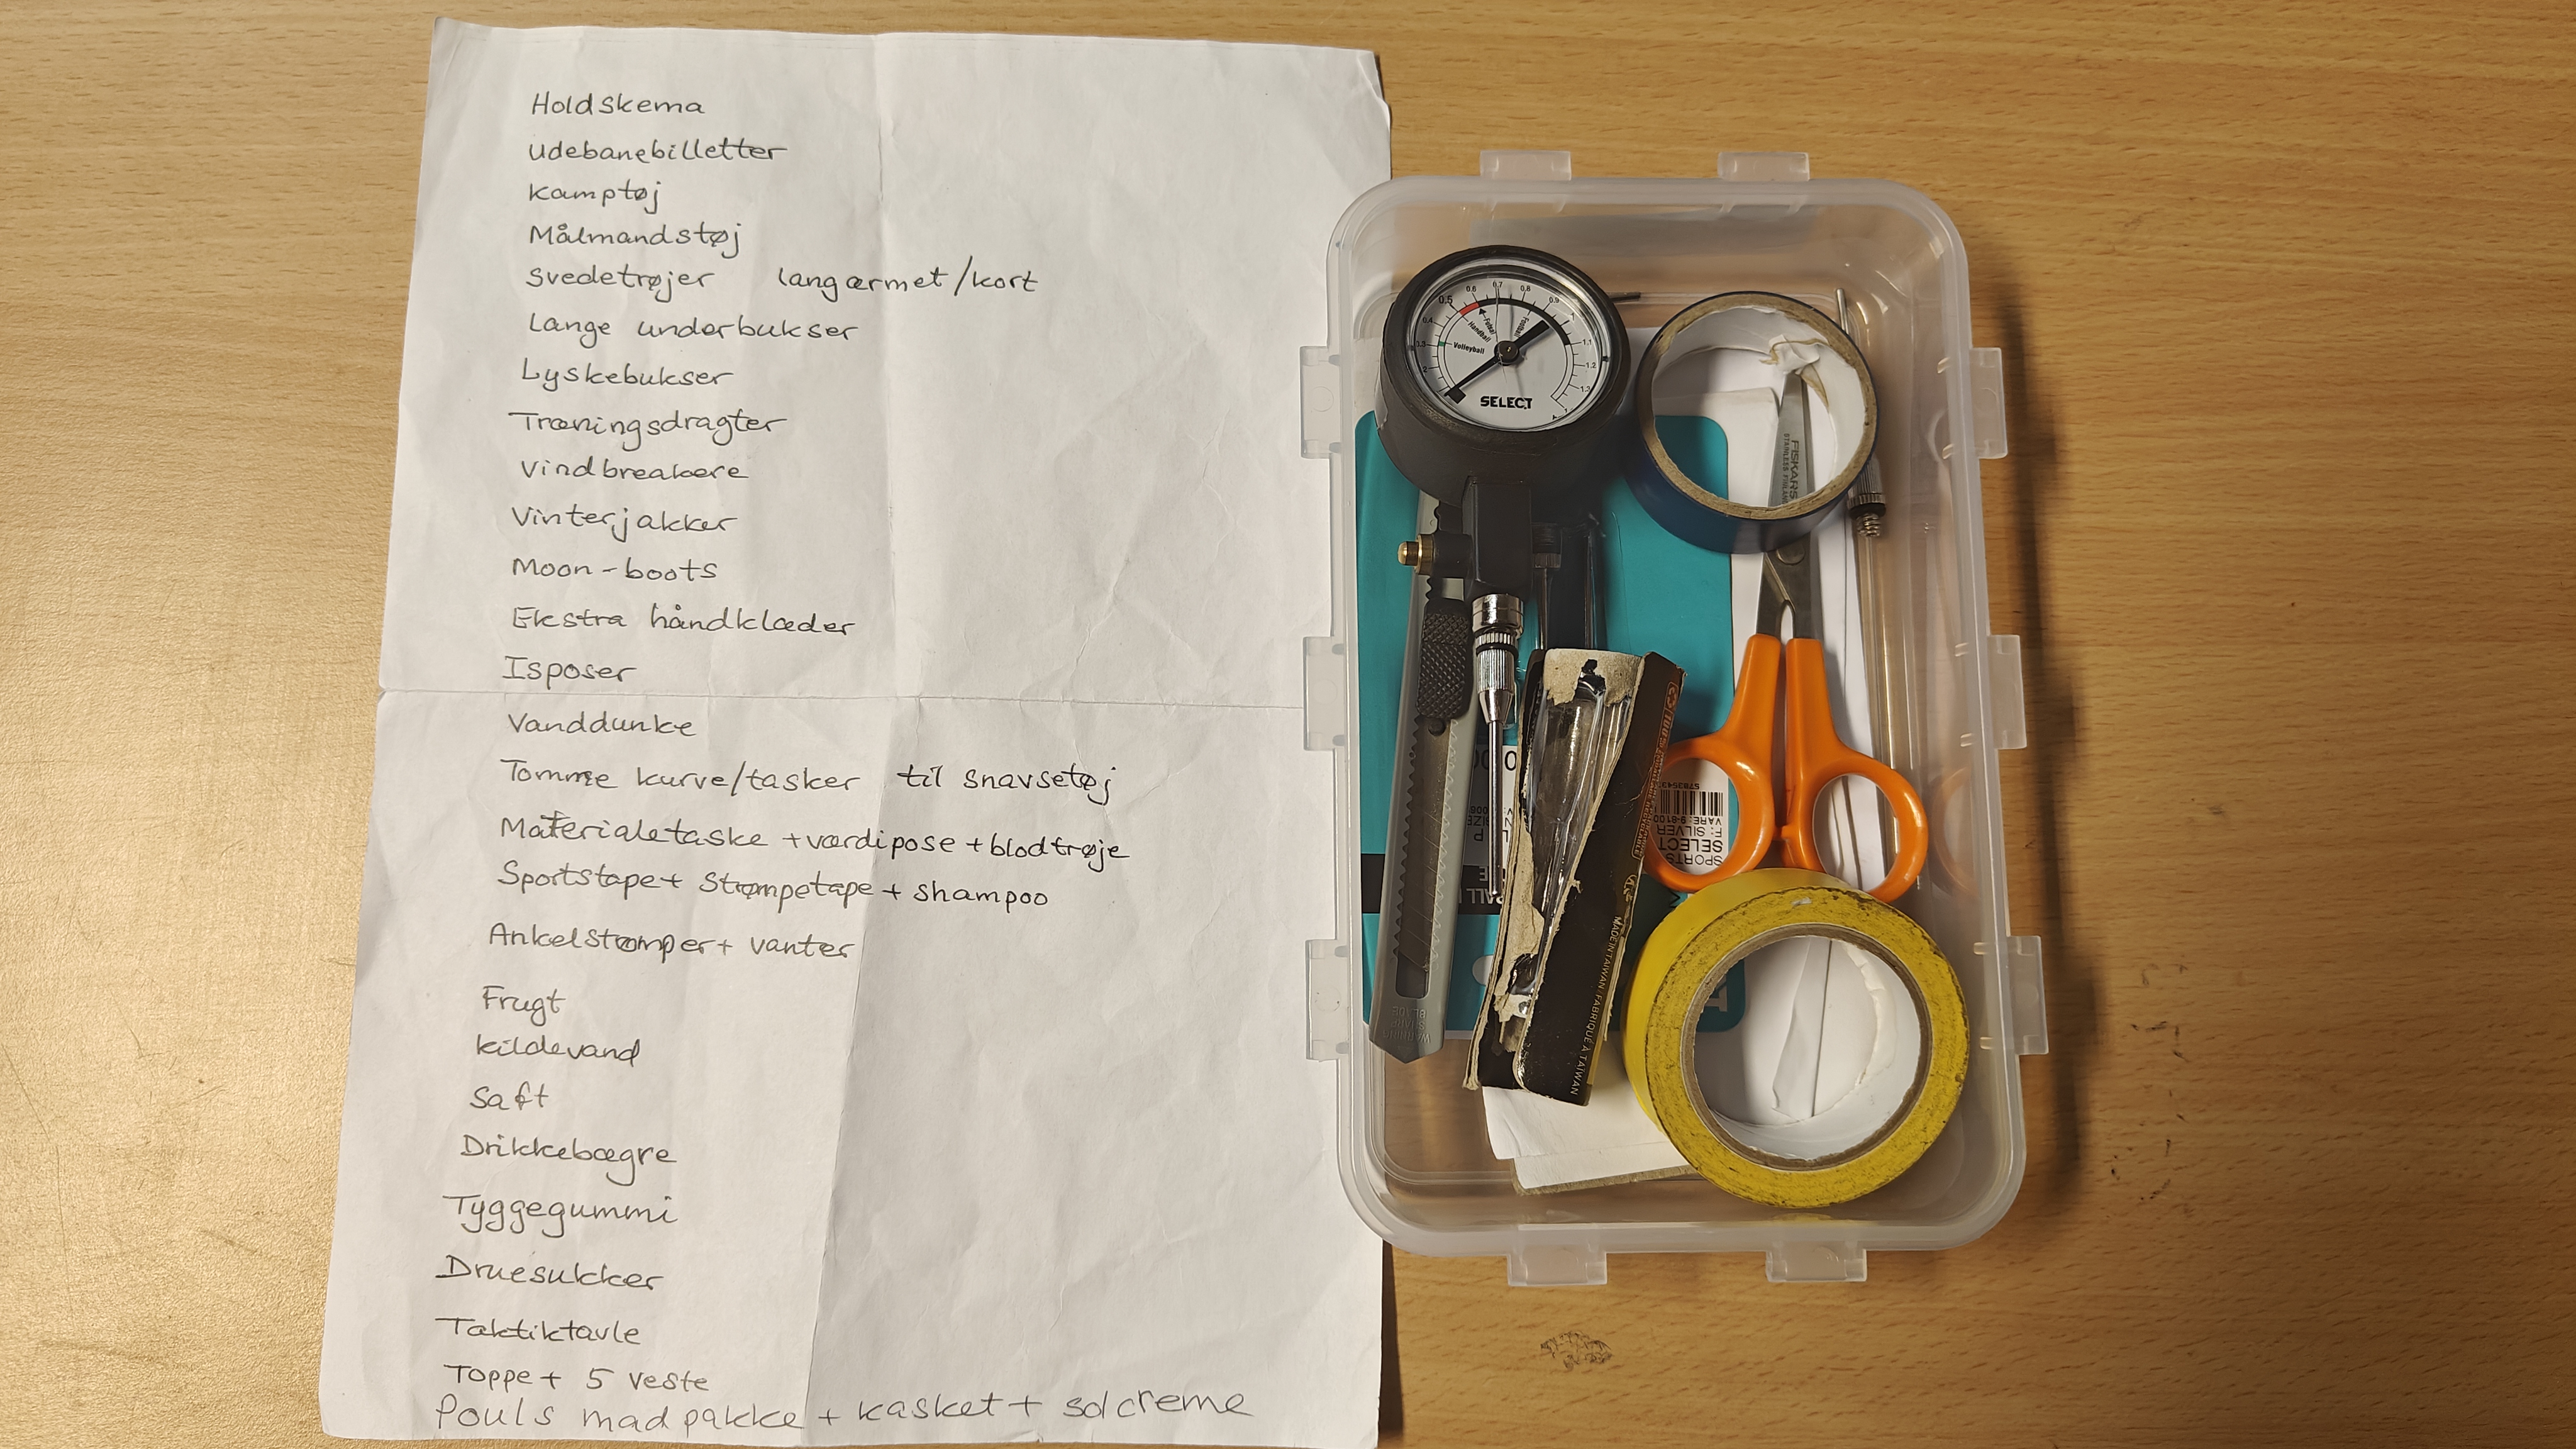 Holdskema
Udebanebilletter
Kamptøj
Målmandstøj
Svedetrøjer langærmet/kort
Lange underbukser
Lyskebukser
Træningsdragter
Vindbreakere
Vinterjakker
Moon-boots
Ekstra håndklæder
Isposer
Vanddunke
Tomme kurve/tasker til snavsetøj
Materialetaske + værdipose + blodtrøje
Sportstape + Strømpetape + shampoo
Ankelstømper + vanter
Frugt
Kildevand
Saft
Drikkebægre
Tyggegummi
Druesukker
Taktiktavle
Toppe + 5 veste
Pouls madpakke + kasket + solcreme
0.5 0.6 0.7 0.8 0.9
0.4 Futsal Handball Football 1.1
Volleyball 1.2
SELECT
FISKARS
STAINLESS FINLAND
VARE: 9-8100
F: SILVER
SELECT
SPORTS
MADE IN TAIWAN FABRIQUÉ À TAIWAN
WARNING
SHARP
BLADE